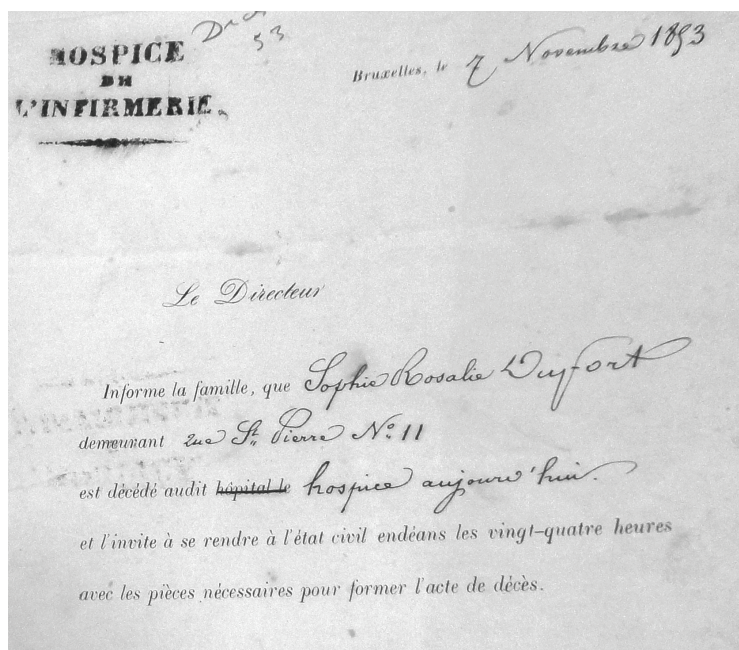 HOSPICE
DE
L'INFIRMERIE.
53
Bruxelles, le 7 Novembre 1853
Le Directeur
Informe la famille, que Sophie Rosalie Dufort
demeurant rue St. Pierre No. 11
est décédé audit hôpital le hospice aujourd'hui.
et l'invite à se rendre à l'état civil endéans les vingt-quatre heures
avec les pièces nécessaires pour former l'acte de décès.